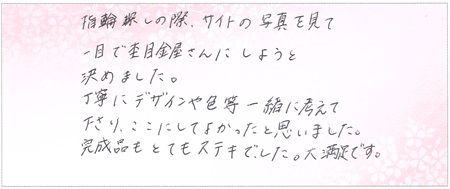 指輪探しの際、サイトの写真を見て
一目で杢目金屋さんにしようと
決めました。
丁寧にデザインや色等一緒に考えて
下さり、ここにしてよかったと思いました。
完成品もとてもステキでした。大満足です。